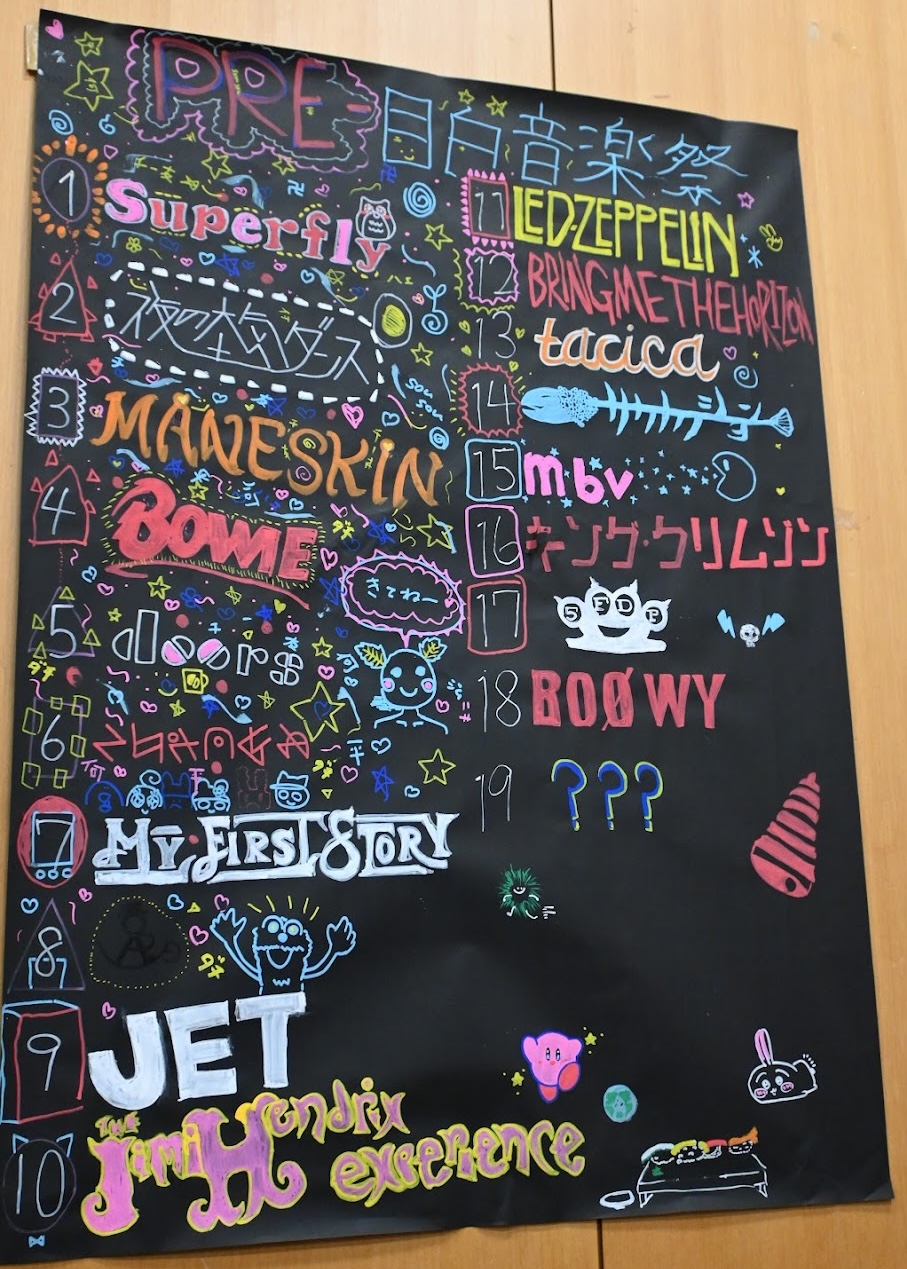 PRE-目白音楽祭
1 Superfly
2 夜の本気ダンス
3 MÅNESKIN
4 BOWIE
5 doors
きてねー
6
7 MY FIRST STORY
8
9 JET
10 THE Jimi Hendrix experience
11 LED-ZEPPELIN
12 BRING ME THE HORIZON
13 tacica
14
15 mbv
16 キング・クリムゾン
17 5FDP
18 BOØWY
19 ???